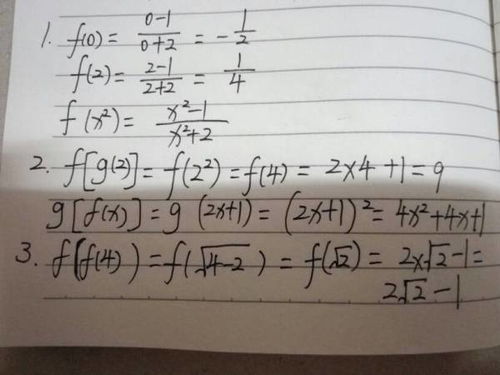 1. f(0) = (0-1)/(0+2) = -1/2
f(2) = (2-1)/(2+2) = 1/4
f(x²) = (x²-1)/(x²+2)
2. f[g(2)] = f(2²) = f(4) = 2×4+1 = 9
g[f(x)] = g(2x+1) = (2x+1)² = 4x²+4x+1
3. f(f(4)) = f(√(4-2)) = f(√2) = 2×√2-1 =
2√2-1